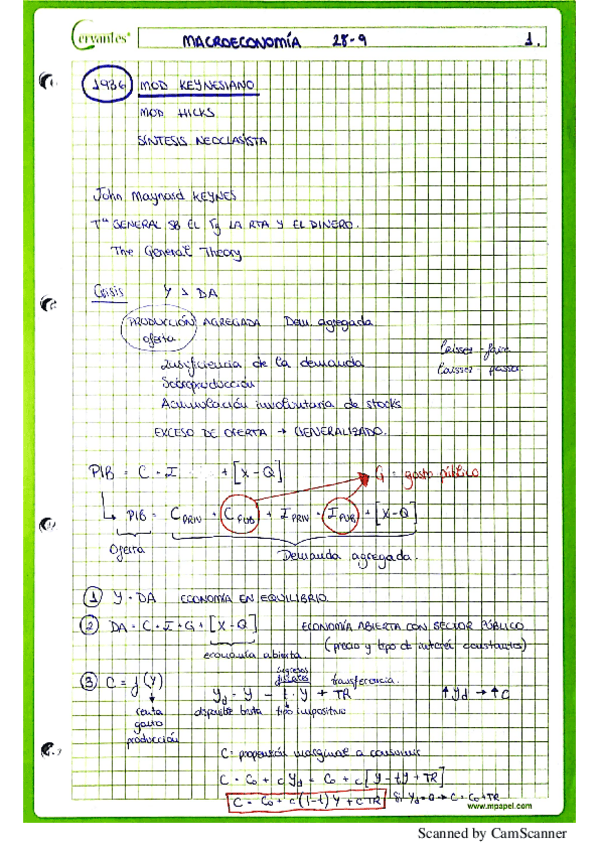 Cervantes
MACROECONOMÍA 28-9 1.
1936 MOD KEYNESIANO
MOD HICKS
SÍNTESIS NEOCLASISTA
John Maynard KEYNES
Tª GENERAL SB EL Tj LA RTA Y EL DINERO.
The General Theory
Crisis Y > DA
PRODUCCIÓN AGREGADA Dem. agregada
oferta
laissez-faire
Insuficiencia de la demanda
laissez passer.
Sobreproducción
Acumulación involuntaria de stocks
EXCESO DE OFERTA → GENERALIZADO.
PIB = C + I + [X-Q] G = gasto público
PIB = C PRIV + C PUB + I PRIV + I PUB + [X-Q]
Oferta Demanda agregada.
1 Y = DA ECONOMÍA EN EQUILIBRIO
2 DA = C + I + G + [X-Q] ECONOMÍA ABIERTA CON SECTOR PÚBLICO
economía abierta (precio y tipo de interés constantes)
ingresos
fiscales transferencia.
3 C = f(Y) Yd = Y - t·Y + TR ↑Yd → ↑C
renta disponible bruta tipo impositivo
gasto
producción
C = propensión marginal a consumir
C = C0 + cYd = C0 + c[Y-tY+TR]
C = C0 + c(1-t)Y + cTR Si Yd=0 → C = C0 + TR
www.mpapel.com
Scanned by CamScanner